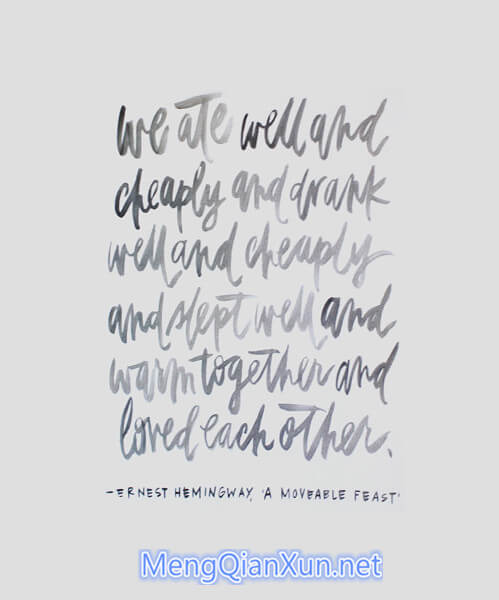 we ate well and
cheaply and drank
well and cheaply
and slept well and
warm together and
loved each other.
-ERNEST HEMINGWAY, 'A MOVEABLE FEAST'
MengQianXun.net